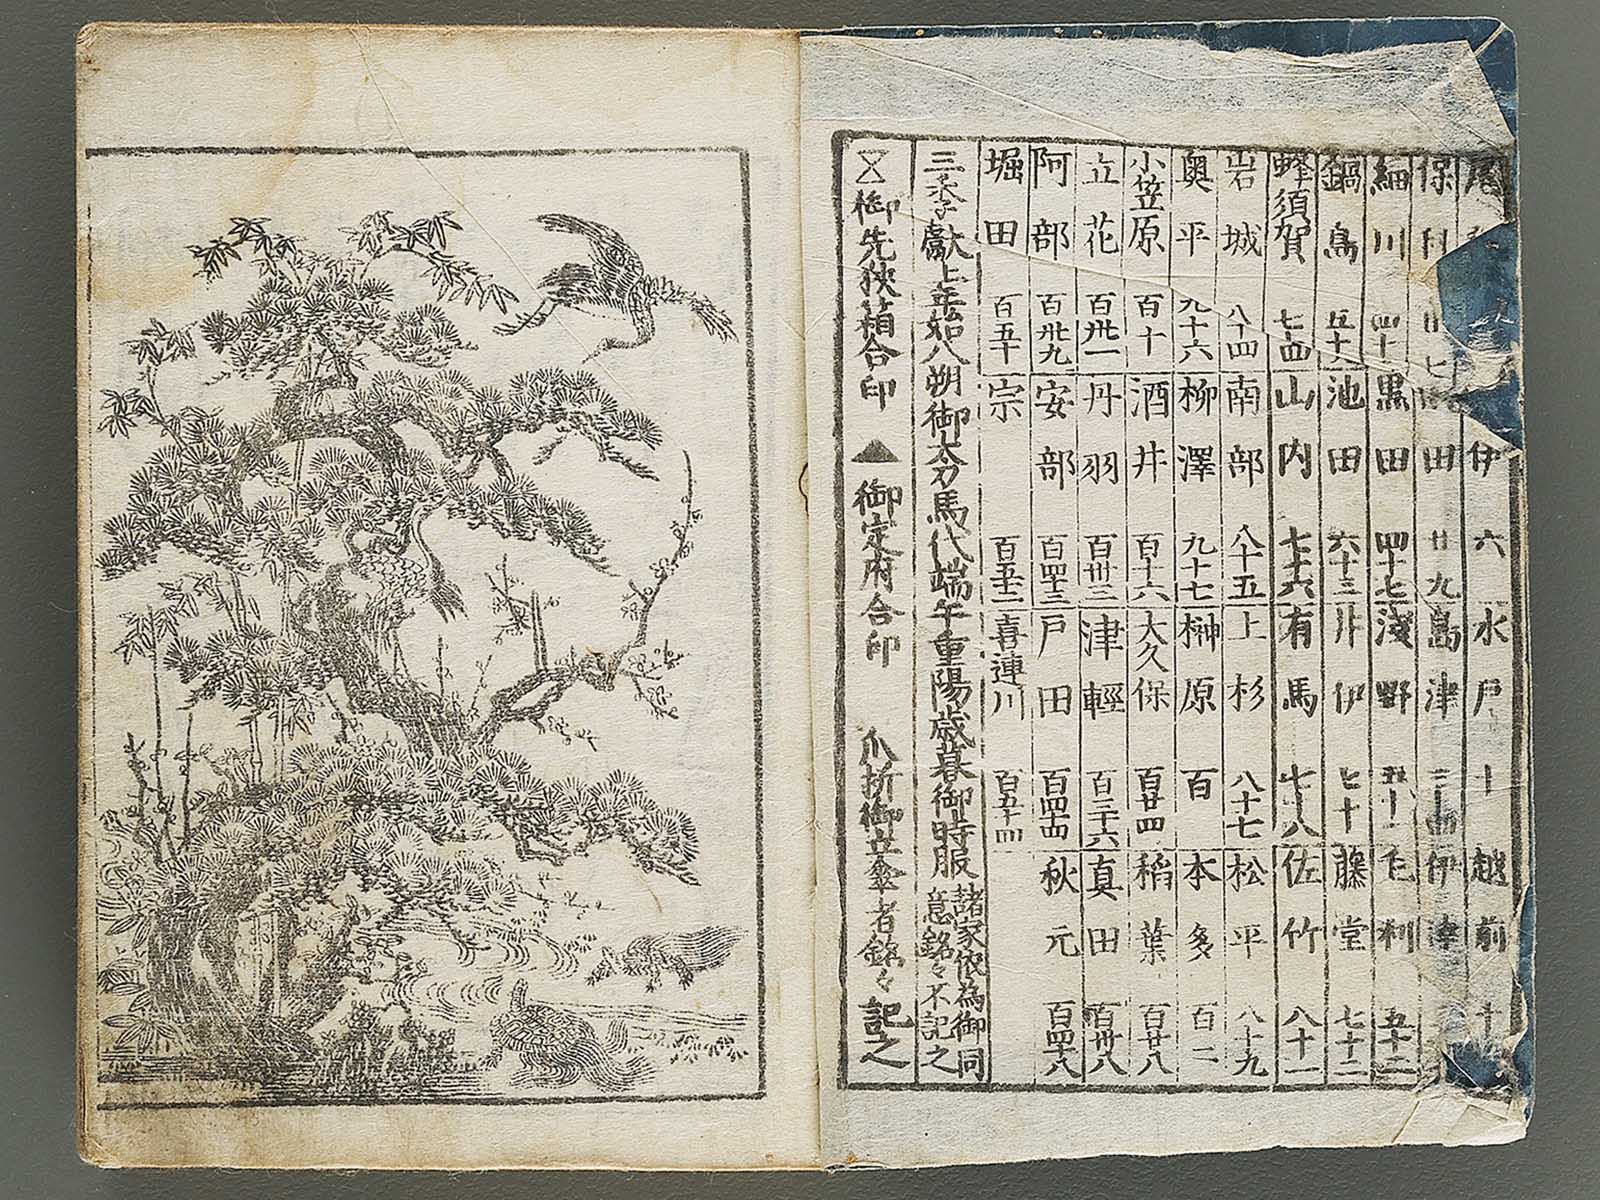 伊 六 水戸 十 越前
保科 田 廿九 島津 伊
細川 四十 黒田 四十七 淺野 五十一 毛利 五十二
鍋島 五十八 池田 六十三 井伊 七十 藤堂 七十二
蜂須賀 七十四 山内 七十六 有馬 七十八 佐竹 八十一
岩城 八十四 南部 八十五 上杉 八十七 松平 八十九
奥平 九十六 柳澤 九十七 榊原 百 本多 百二
小笠原 百十 酒井 百十六 大久保 百廿四 稲葉 百廿八
立花 百卅一 丹羽 百卅三 津輕 百三十六 真田 百卅八
阿部 百卅九 安部 百四十三 戸田 百四十四 秋元 百四十八
堀田 百五十 宗 百五十二 喜連川 百五十四
三季獻上年始八朔御太刀馬代端午重陽歳暮御時服 諸家依為御同意銘々不記之
御先狹箱合印 ▲御定府合印 爪折御立傘者銘々記之